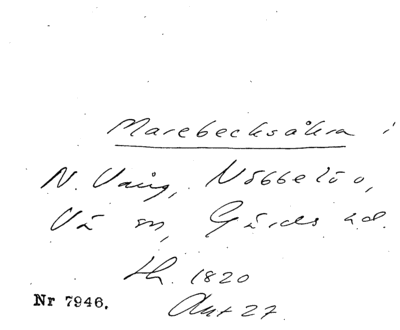 Marebecksåkra i
N. Vång, Nöbbelöv,
Vä sn, Gärds hd.
Lh. 1820
Akt 27
Nr 7946.